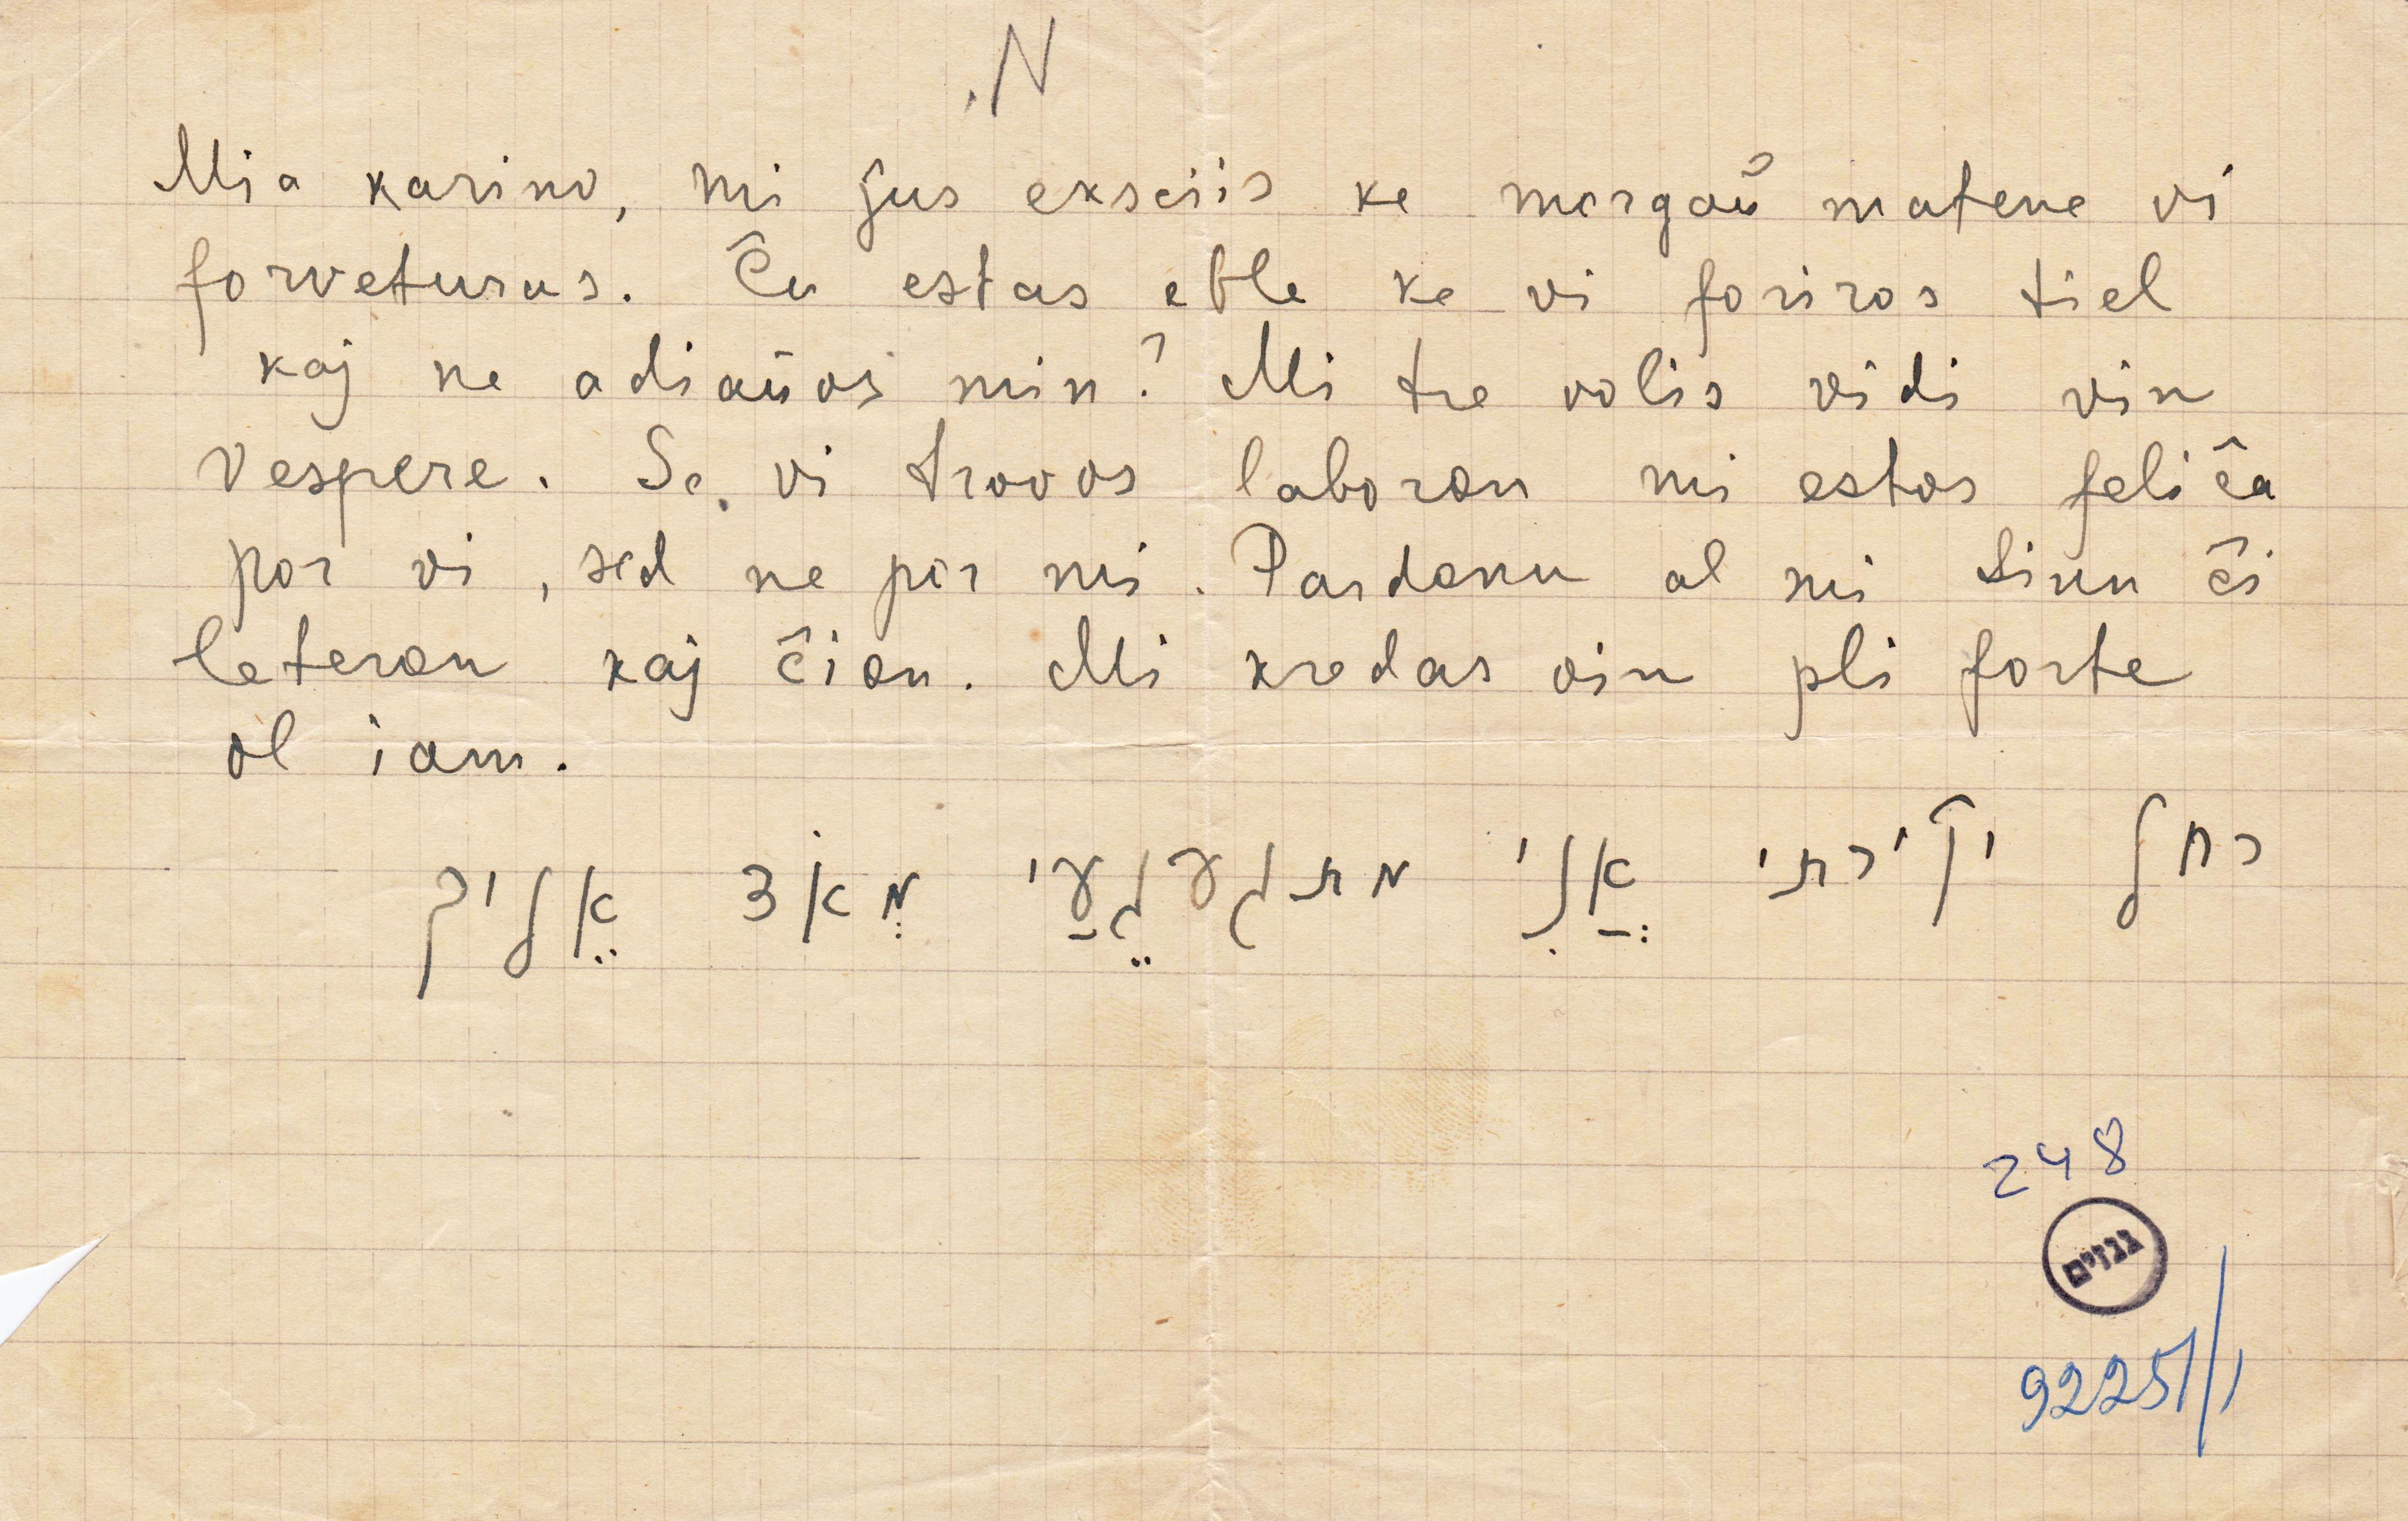 .N
Mia karino, mi ĵus eksciis ke morgaŭ matene vi
forveturas. Ĉu estas eble ke vi foriros tiel
kaj ne adiaŭos min? Mi tre volis vidi vin
vespere. Se vi trovos laboron mi estos feliĉa
por vi, sed ne por mi. Pardonu al mi tiun ĉi
leteron kaj ĉion. Mi kredas vin pli forte
ol iam.
רחל יקירתי אֲנִי מתגעגֵעַי מְאֹד אֵליך
248
גנזים
92251/1